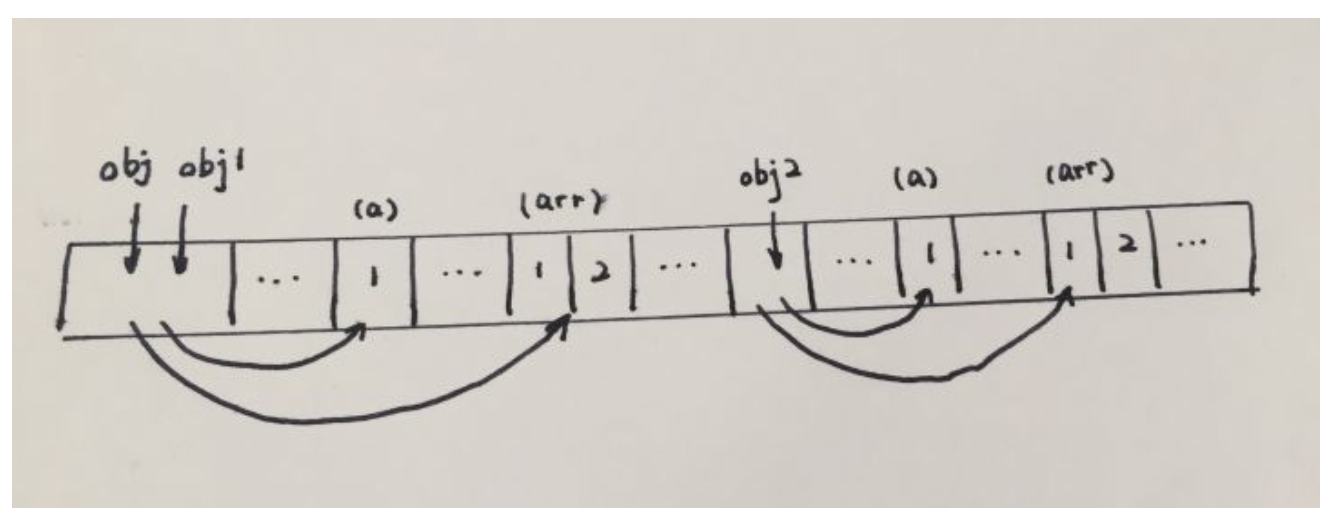 obj obj1 (a) (arr) obj2 (a) (arr)
... 1 ... 1 2 ... ... 1 ... 1 2 ...